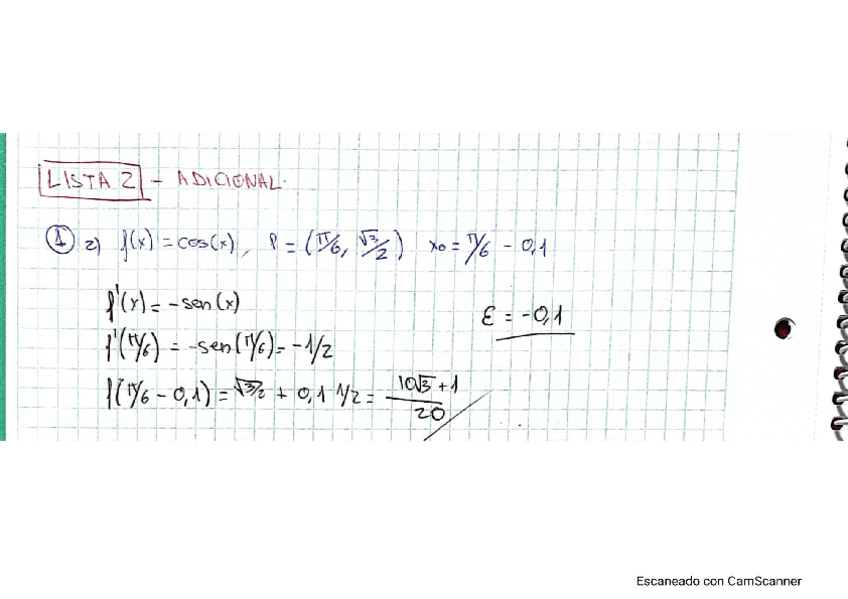 LISTA 2 - ADICIONAL.
① 2) f(x) = cos(x), P = (π/6, √3/2) x₀ = π/6 - 0,1
f'(x) = -sen(x)
ε = -0,1
f'(π/6) = -sen(π/6) = -1/2
f(π/6 - 0,1) = √3/2 + 0,1 1/2 = 10√3 + 1 / 20
Escaneado con CamScanner